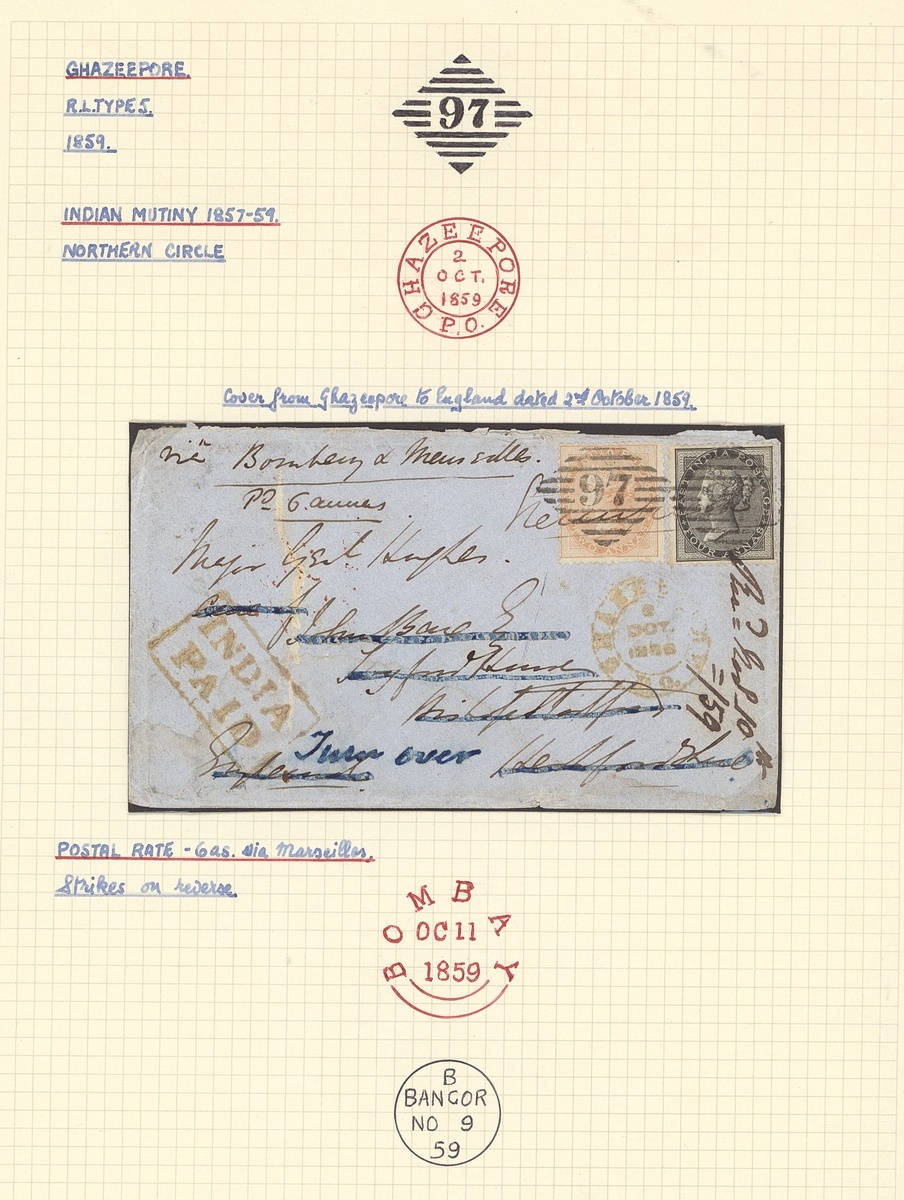 GHAZEEPORE.
R.L.TYPE 5.
1859.
97
INDIAN MUTINY 1857-59.
NORTHERN CIRCLE
GHAZEEPORE
2
OCT.
1859
P.O.
Cover from Ghazeepore to England dated 2nd October 1859.
via Bombay & Marseilles.
Pd 6 annas
97
INDIA POSTAGE
FOUR ANNAS
Major Genl Hughes
OCT.
INDIA
PAID
/59
Turn over
England
POSTAL RATE - 6 as. via Marseilles.
Strikes on reverse.
BOMBAY
OC 11
1859
B
BANGOR
NO 9
59